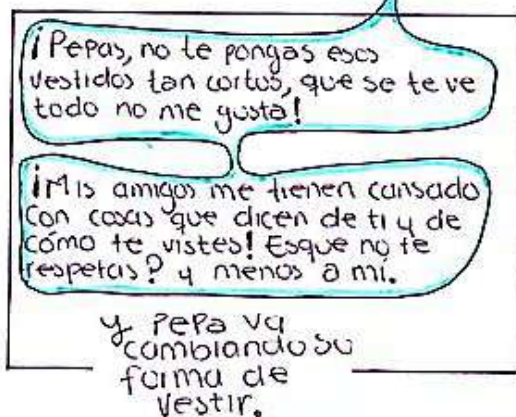 ¡Pepas, no te pongas esos
vestidos tan cortos, que se te ve
todo no me gusta!
¡Mis amigos me tienen cansado
con cosas que dicen de ti y de
cómo te vistes! Esque no te
respetas? y menos a mi.
y PePa va
cambiando su
forma de
vestir.